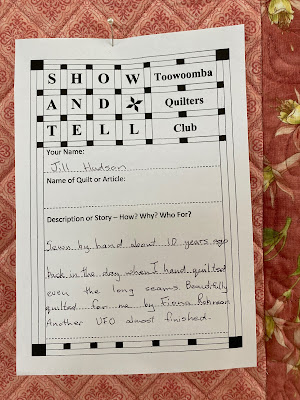 SHOW
Toowoomba
AND
Quilters
TELL
Club
Your Name:
Jill Hudson
Name of Quilt or Article:
Description or Story – How? Why? Who For?
Sewn by hand about 10 years ago
Back in the day when I hand quilted
even the long seams. Beautifully
quilted for me by Fiona
Another UFO almost finished.